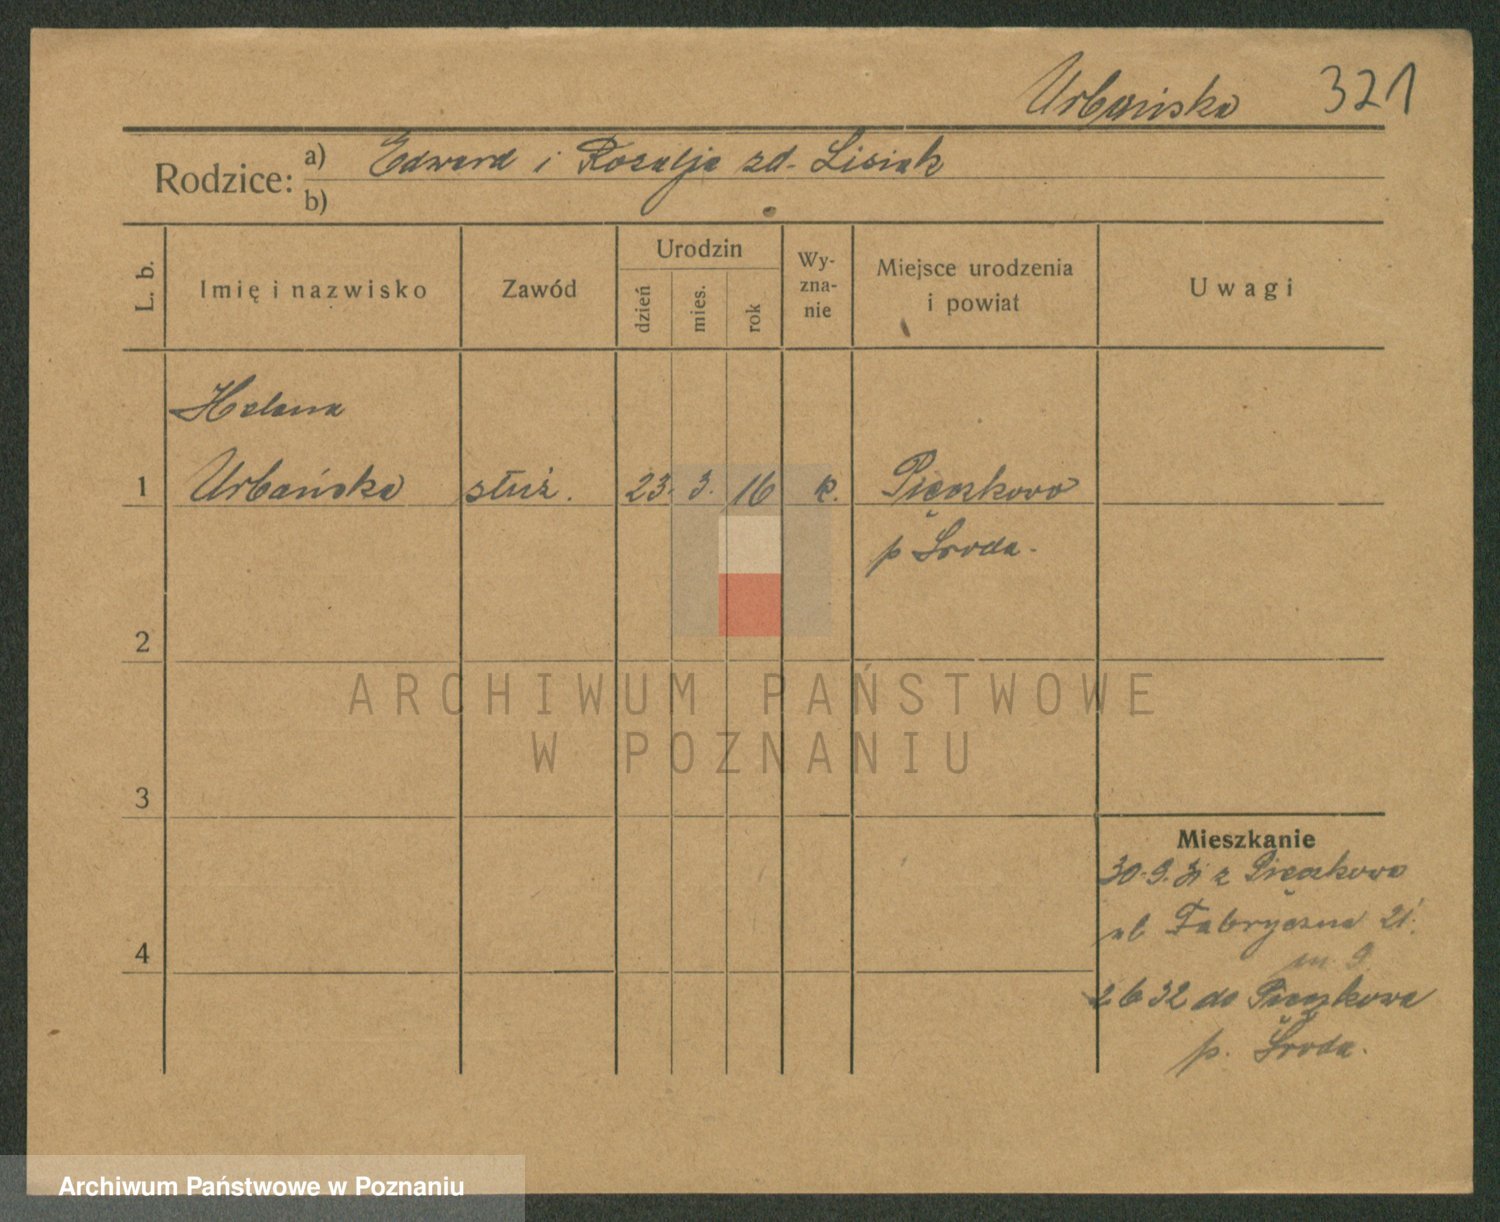 Urbańska 321
Rodzice: a) Edward i Rozalja zd. Lisiak
b)
L. b.
Imię i nazwisko
Zawód
Urodzin
dzień
mies.
rok
Wy-
zna-
nie
Miejsce urodzenia
i powiat
Uwagi
Helena
1 Urbańska służ. 23. 3. 16 k. Pięczkowo
p Środa.
2
3
4
Mieszkanie
30.9.31 z Pięczkowo
ul Fabryczna 21.
m 9
2 6 32 do Pięczkowa
p. Środa.
ARCHIWUM PAŃSTWOWE
W POZNANIU
Archiwum Państwowe w Poznaniu